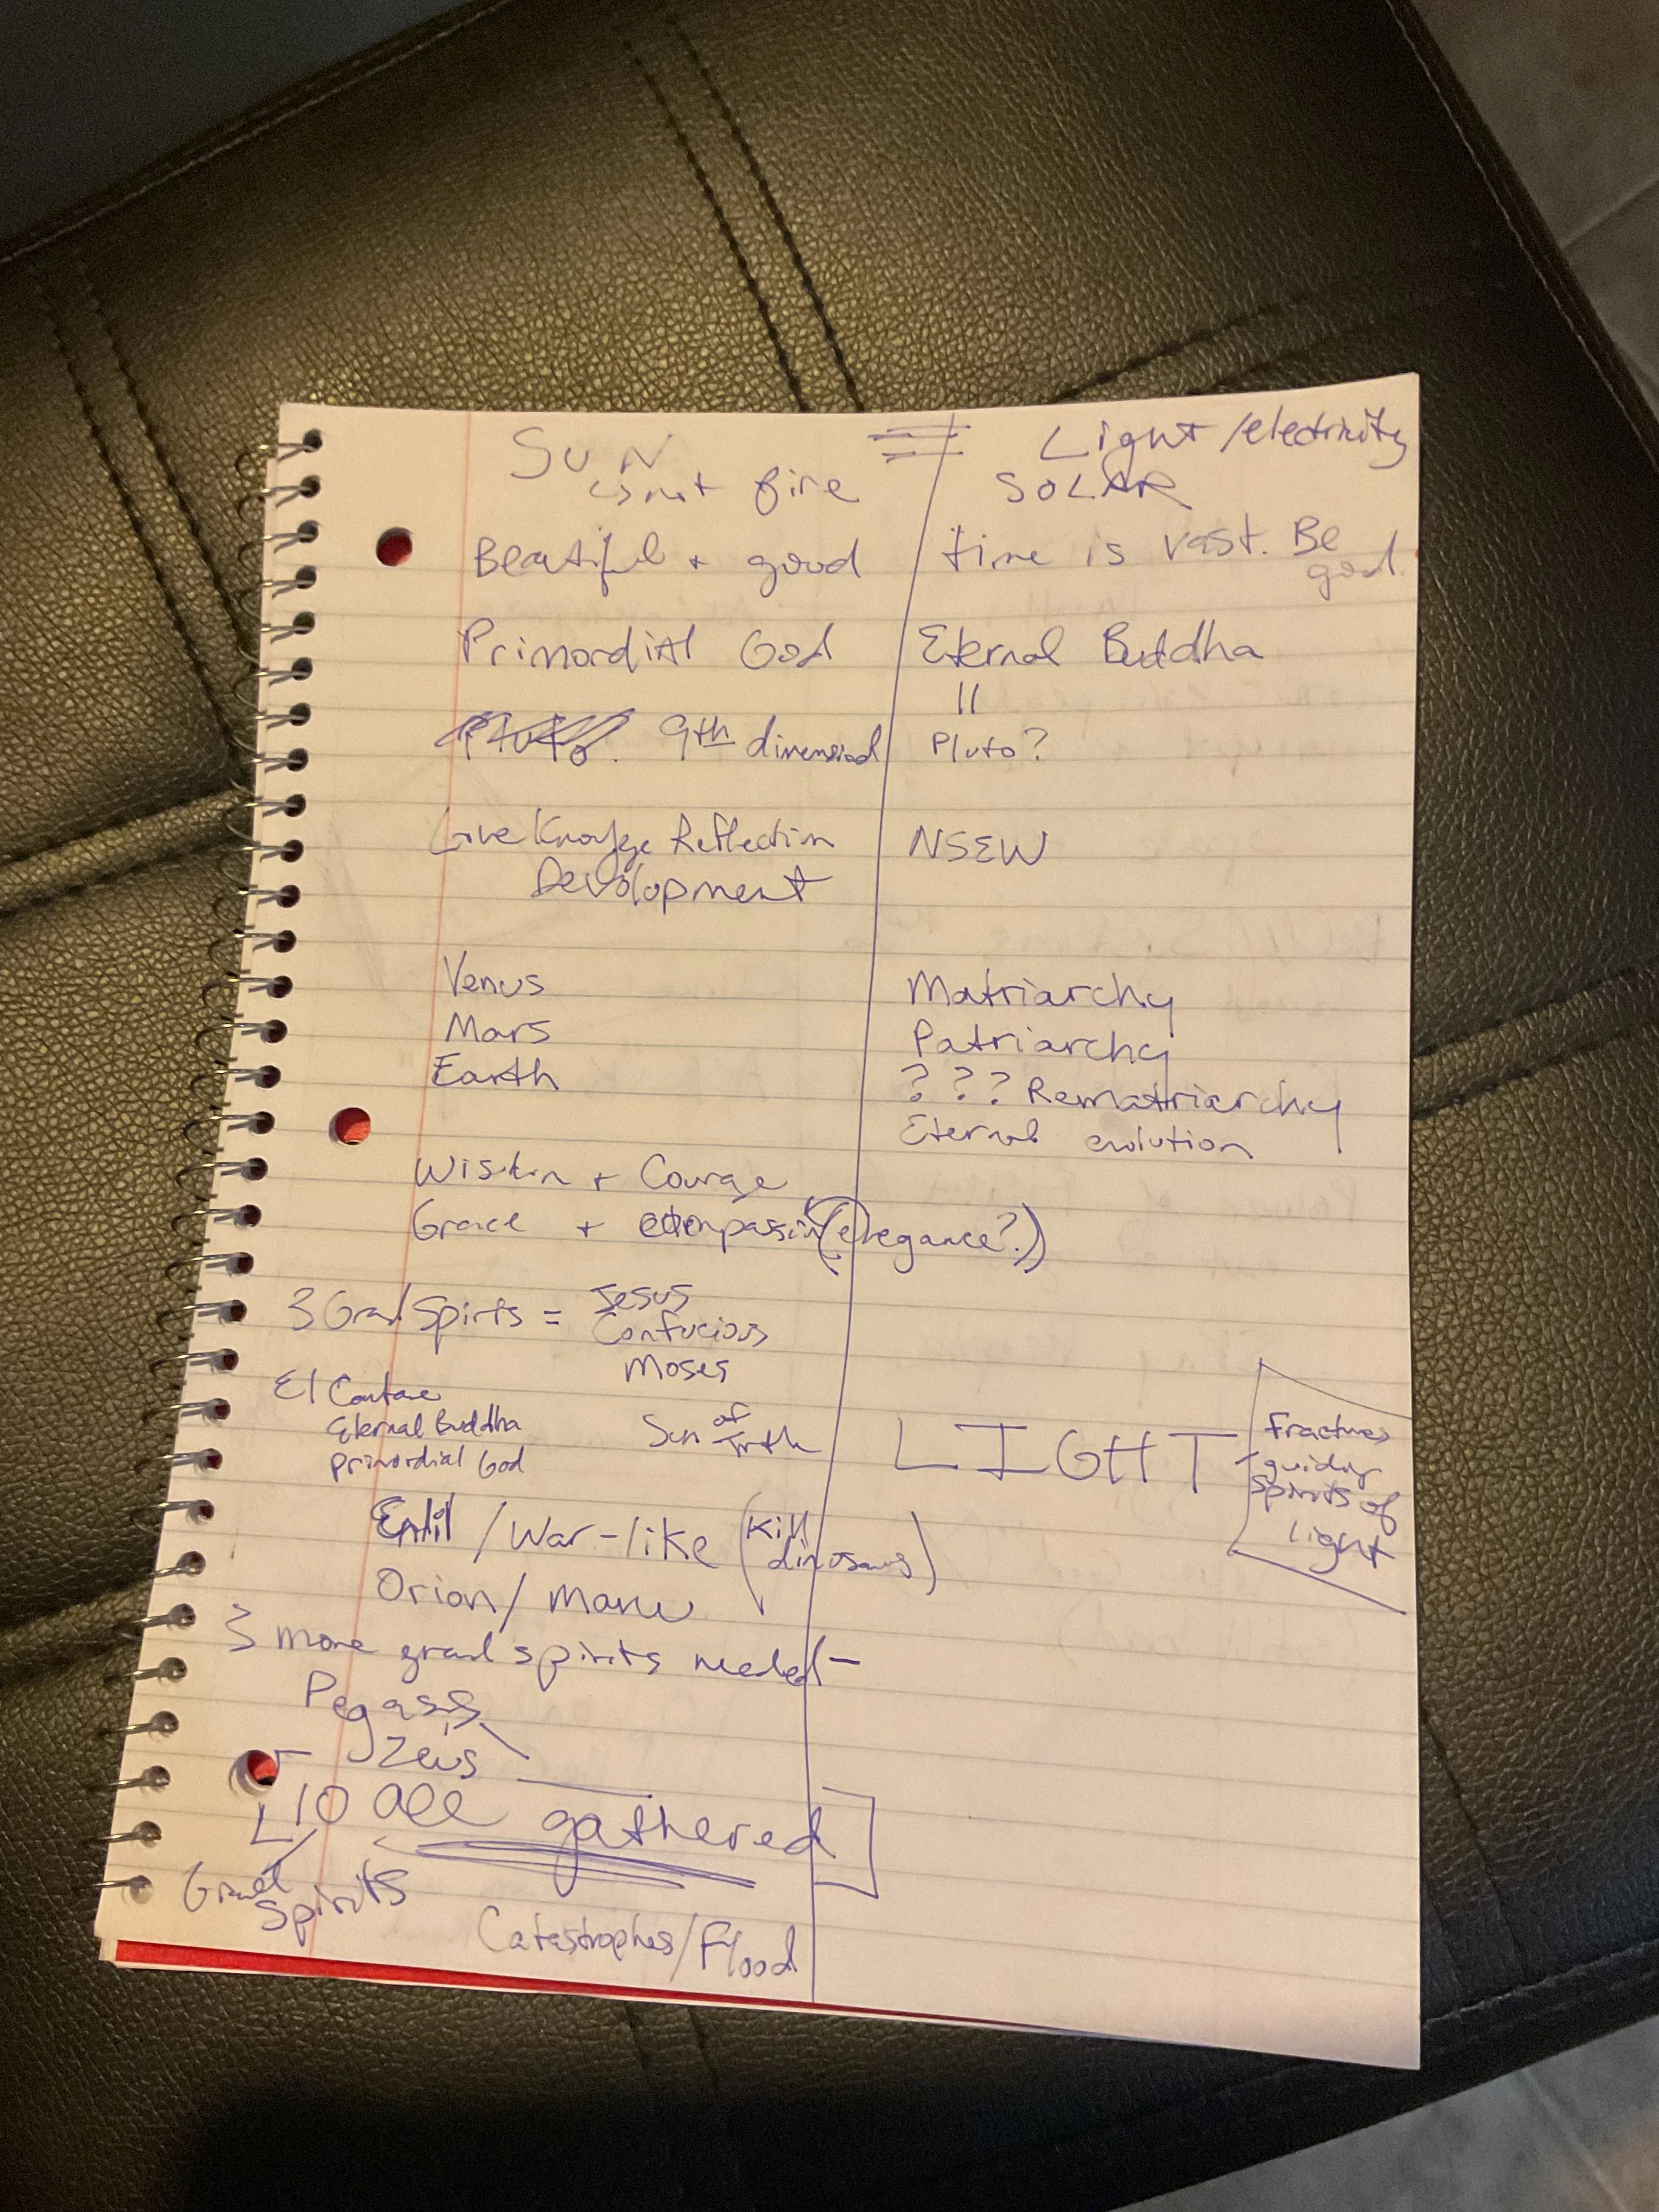 SUN = Light/electricity
is not fire SOLAR
Beautiful + good time is vast. Be good.
Primordial God Eternal Buddha
11
Pluto. 9th dimensional Pluto?
Love Knowledge Reflection NSEW
Development
Venus Matriarchy
Mars Patriarchy
Earth ? ? ? Rematriarchy
Eternal evolution
Wisdom + Courage
Grace + compassion (elegance?)
3 Grand Spirits = Jesus
Confucious
Moses
El Cantare
Eternal Buddha
primordial God
Sun of Truth LIGHT
fractures
guiding
spirits of
light
Enlil / War-like (kill dinosaurs)
Orion / Manu
3 more grand spirits needed -
Pegasus
Zeus
10 all gathered
Great
Spirits
Catastrophes/Flood